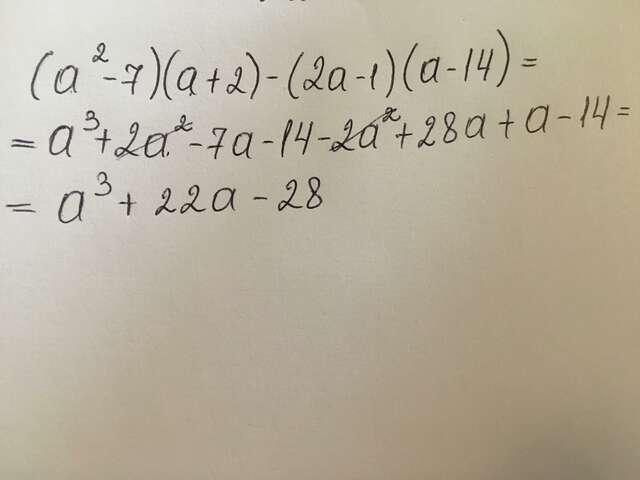 (a²-7)(a+2)-(2a-1)(a-14)=
=a³+2a²-7a-14-2a²+28a+a-14=
=a³+22a-28